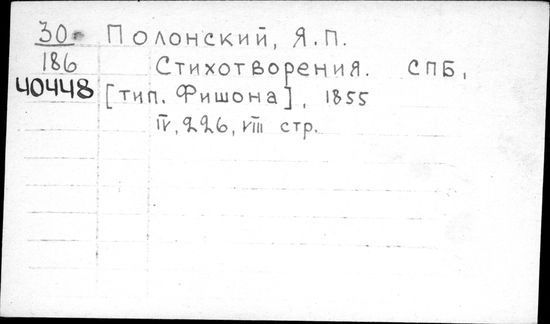 30 Полонский, Я.П.
186 Стихотворения. СПБ,
40448 [тип. Фишона], 1855
IV, 226, VIII стр.